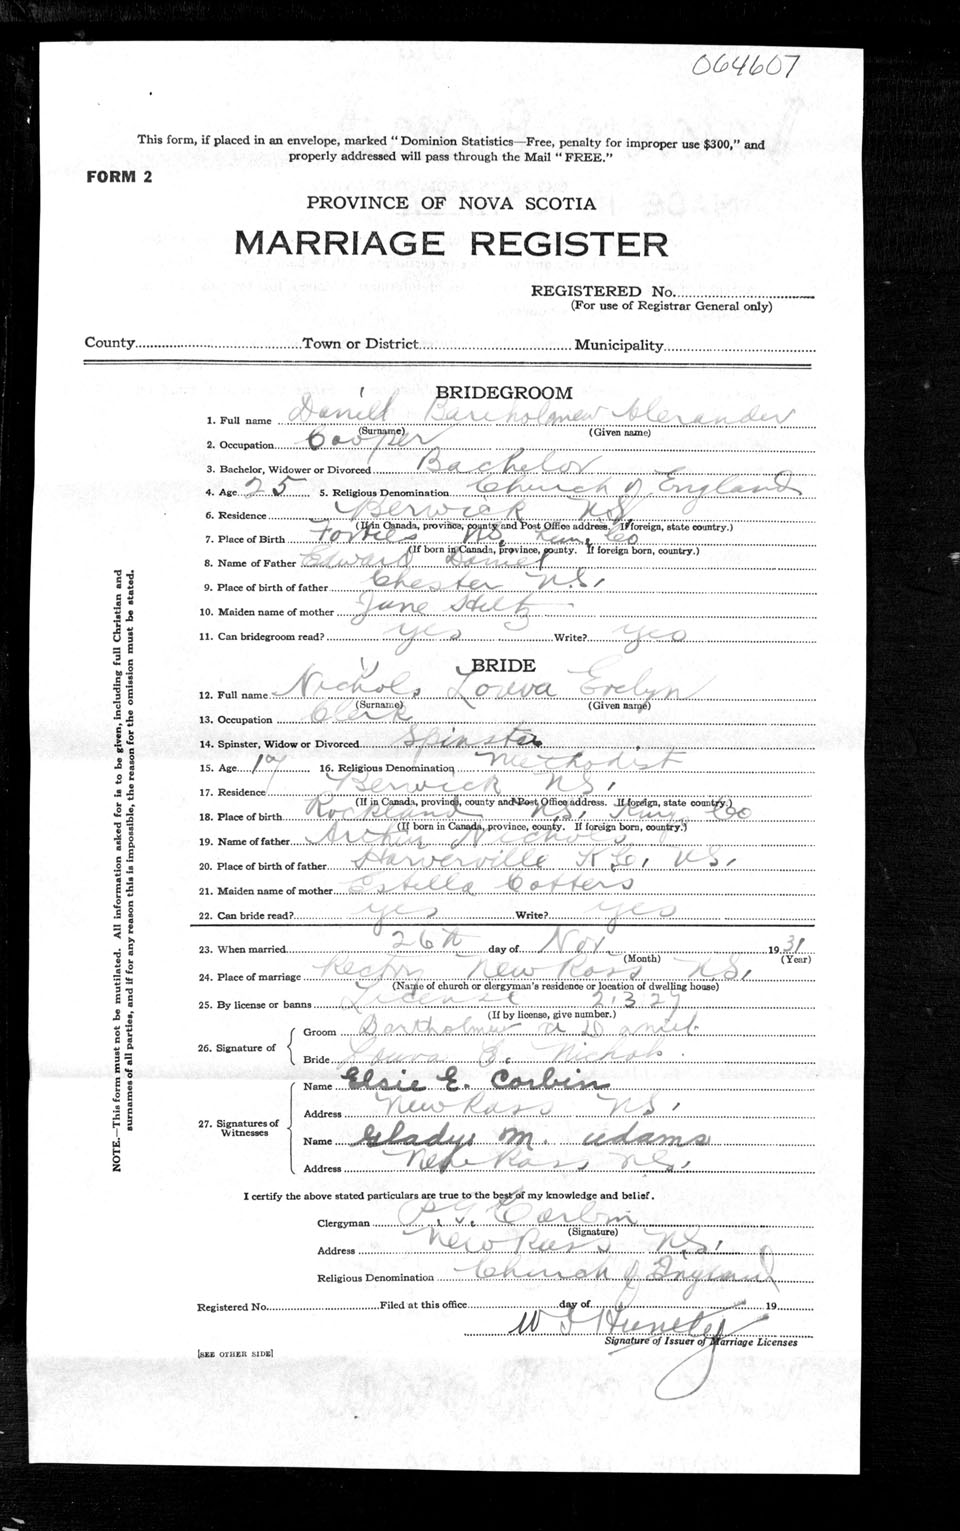 064607
This form, if placed in an envelope, marked "Dominion Statistics—Free, penalty for improper use $300," and
properly addressed will pass through the Mail "FREE."
FORM 2
PROVINCE OF NOVA SCOTIA
MARRIAGE REGISTER
REGISTERED No.
(For use of Registrar General only)
County Town or District Municipality
BRIDEGROOM
1. Full name Daniel Bartholmew Alexander
(Surname) (Given name)
2. Occupation Cooper
3. Bachelor, Widower or Divorced Bachelor
4. Age 25 5. Religious Denomination Church of England
6. Residence Berwick N.S.
(If in Canada, province, county and Post Office address. If foreign, state country.)
7. Place of Birth Forties N.S. Co
(If born in Canada, province, county. If foreign born, country.)
8. Name of Father Edward Daniel
9. Place of birth of father Chester N.S.
10. Maiden name of mother Jane Hiltz
11. Can bridegroom read? yes Write? yes
BRIDE
12. Full name Nichols Louva Evelyn
(Surname) (Given name)
13. Occupation Clerk
14. Spinster, Widow or Divorced Spinster
15. Age 19 16. Religious Denomination Methodist
17. Residence Berwick N.S.
(If in Canada, province, county and Post Office address. If foreign, state country.)
18. Place of birth Rockland N.S. Kings Co
(If born in Canada, province, county. If foreign born, country.)
19. Name of father Arthur Nichols
20. Place of birth of father K Co, N.S.
21. Maiden name of mother Estella Cotters
22. Can bride read? yes Write? yes
23. When married 26th day of Nov 1931
(Month) (Year)
24. Place of marriage Rectory New Ross N.S.
(Name of church or clergyman's residence or location of dwelling house)
25. By license or banns License 21327
(If by license, give number.)
26. Signature of
Groom Bartholmew A Daniel
Bride Louva E. Nichols
27. Signatures of Witnesses
Name Elsie E. Corbin
Address New Ross N.S.
Name Gladys M. Adams
Address New Ross N.S.
I certify the above stated particulars are true to the best of my knowledge and belief.
Clergyman Corbin
(Signature)
Address New Ross N.S.
Religious Denomination Church of England
Registered No. Filed at this office day of 19
W
Signature of Issuer of Marriage Licenses
[SEE OTHER SIDE]
NOTE.—This form must not be mutilated. All information asked for is to be given, including full Christian and
surnames of all parties, and if for any reason this is impossible, the reason for the omission must be stated.